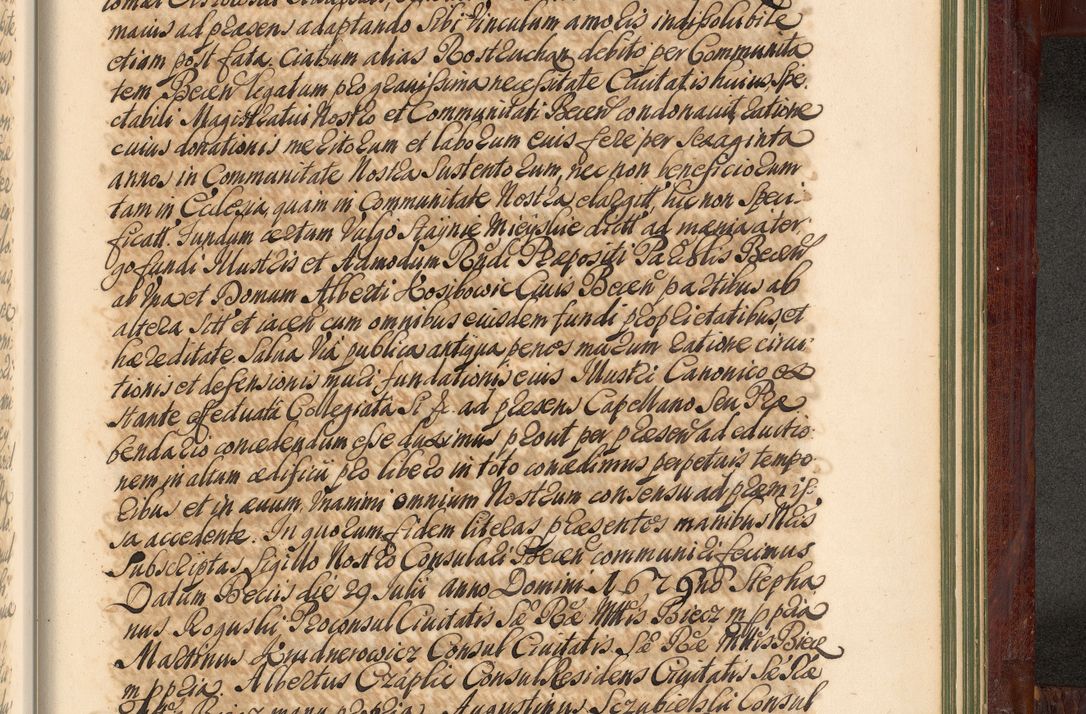 mavis ad præsens adaptando sibi Vinculum amoris indisolubile
etiam post fata. Ciarum alias Rostruchan debito per Communita
tem Becen legatum pro gravissima necessitate Civitatis huius, spe-
ctabili Magistratui Nostro et Communitati Becen condonavit, ratione
cuius donationis meritorum et laborum eius fere per sexaginta
annos in Communitate Nostra sustentorum, nec non beneficiorum
tam in Ecclesia, quam in Communitate Nostra elargitt, hic non speci-
ficatt. Fundum certum Vulgo Staynie Mieyskie dictt ad mænia a ter-
go fundi Illustris et Admodum Rndi Præpositi Parochlis Becen
ab una et Domum Alberti Hosibowic Civis Becen partibus ab
altera sitt et iacen cum omnibus eiusdem fundi proprietatibus, et
hæreditate, salva Via publica antqua penes murum ratione circui-
tionis et defensionis muri, fundationis eius Illustri Canonico ex
stante effectuata Collegiata S. F. ad præsens Capellano seu Præ
bendario concedendum esse duximus, prout per præsen ad eductio-
nem in altum ædificii pro libero in toto concedimus perpetuis tempo-
ribus et in ævum, Unanimi omnium Nostrum consensu ad præm is-
sa accedente. In quorum fidem literas præsentes manibus Nris
Subscriptas Sigillo Nostro Consulari Becen communiri fecimus
Datum Beciis die 29 Julii anno Domini 1679no Stepha
nus Roguski Proconsul Civitatis Sæ Ræ Mttis Biecz m ppria
Martinus Krudnerowicz Consul Civitatis. Sæ Ræ Mttis Biecz
m ppria. Albertus Czaplic Consul Residens Civitatis Sæ Ræ
Mttis Biecz manu ppria. Augustinus Sczubielski Consul